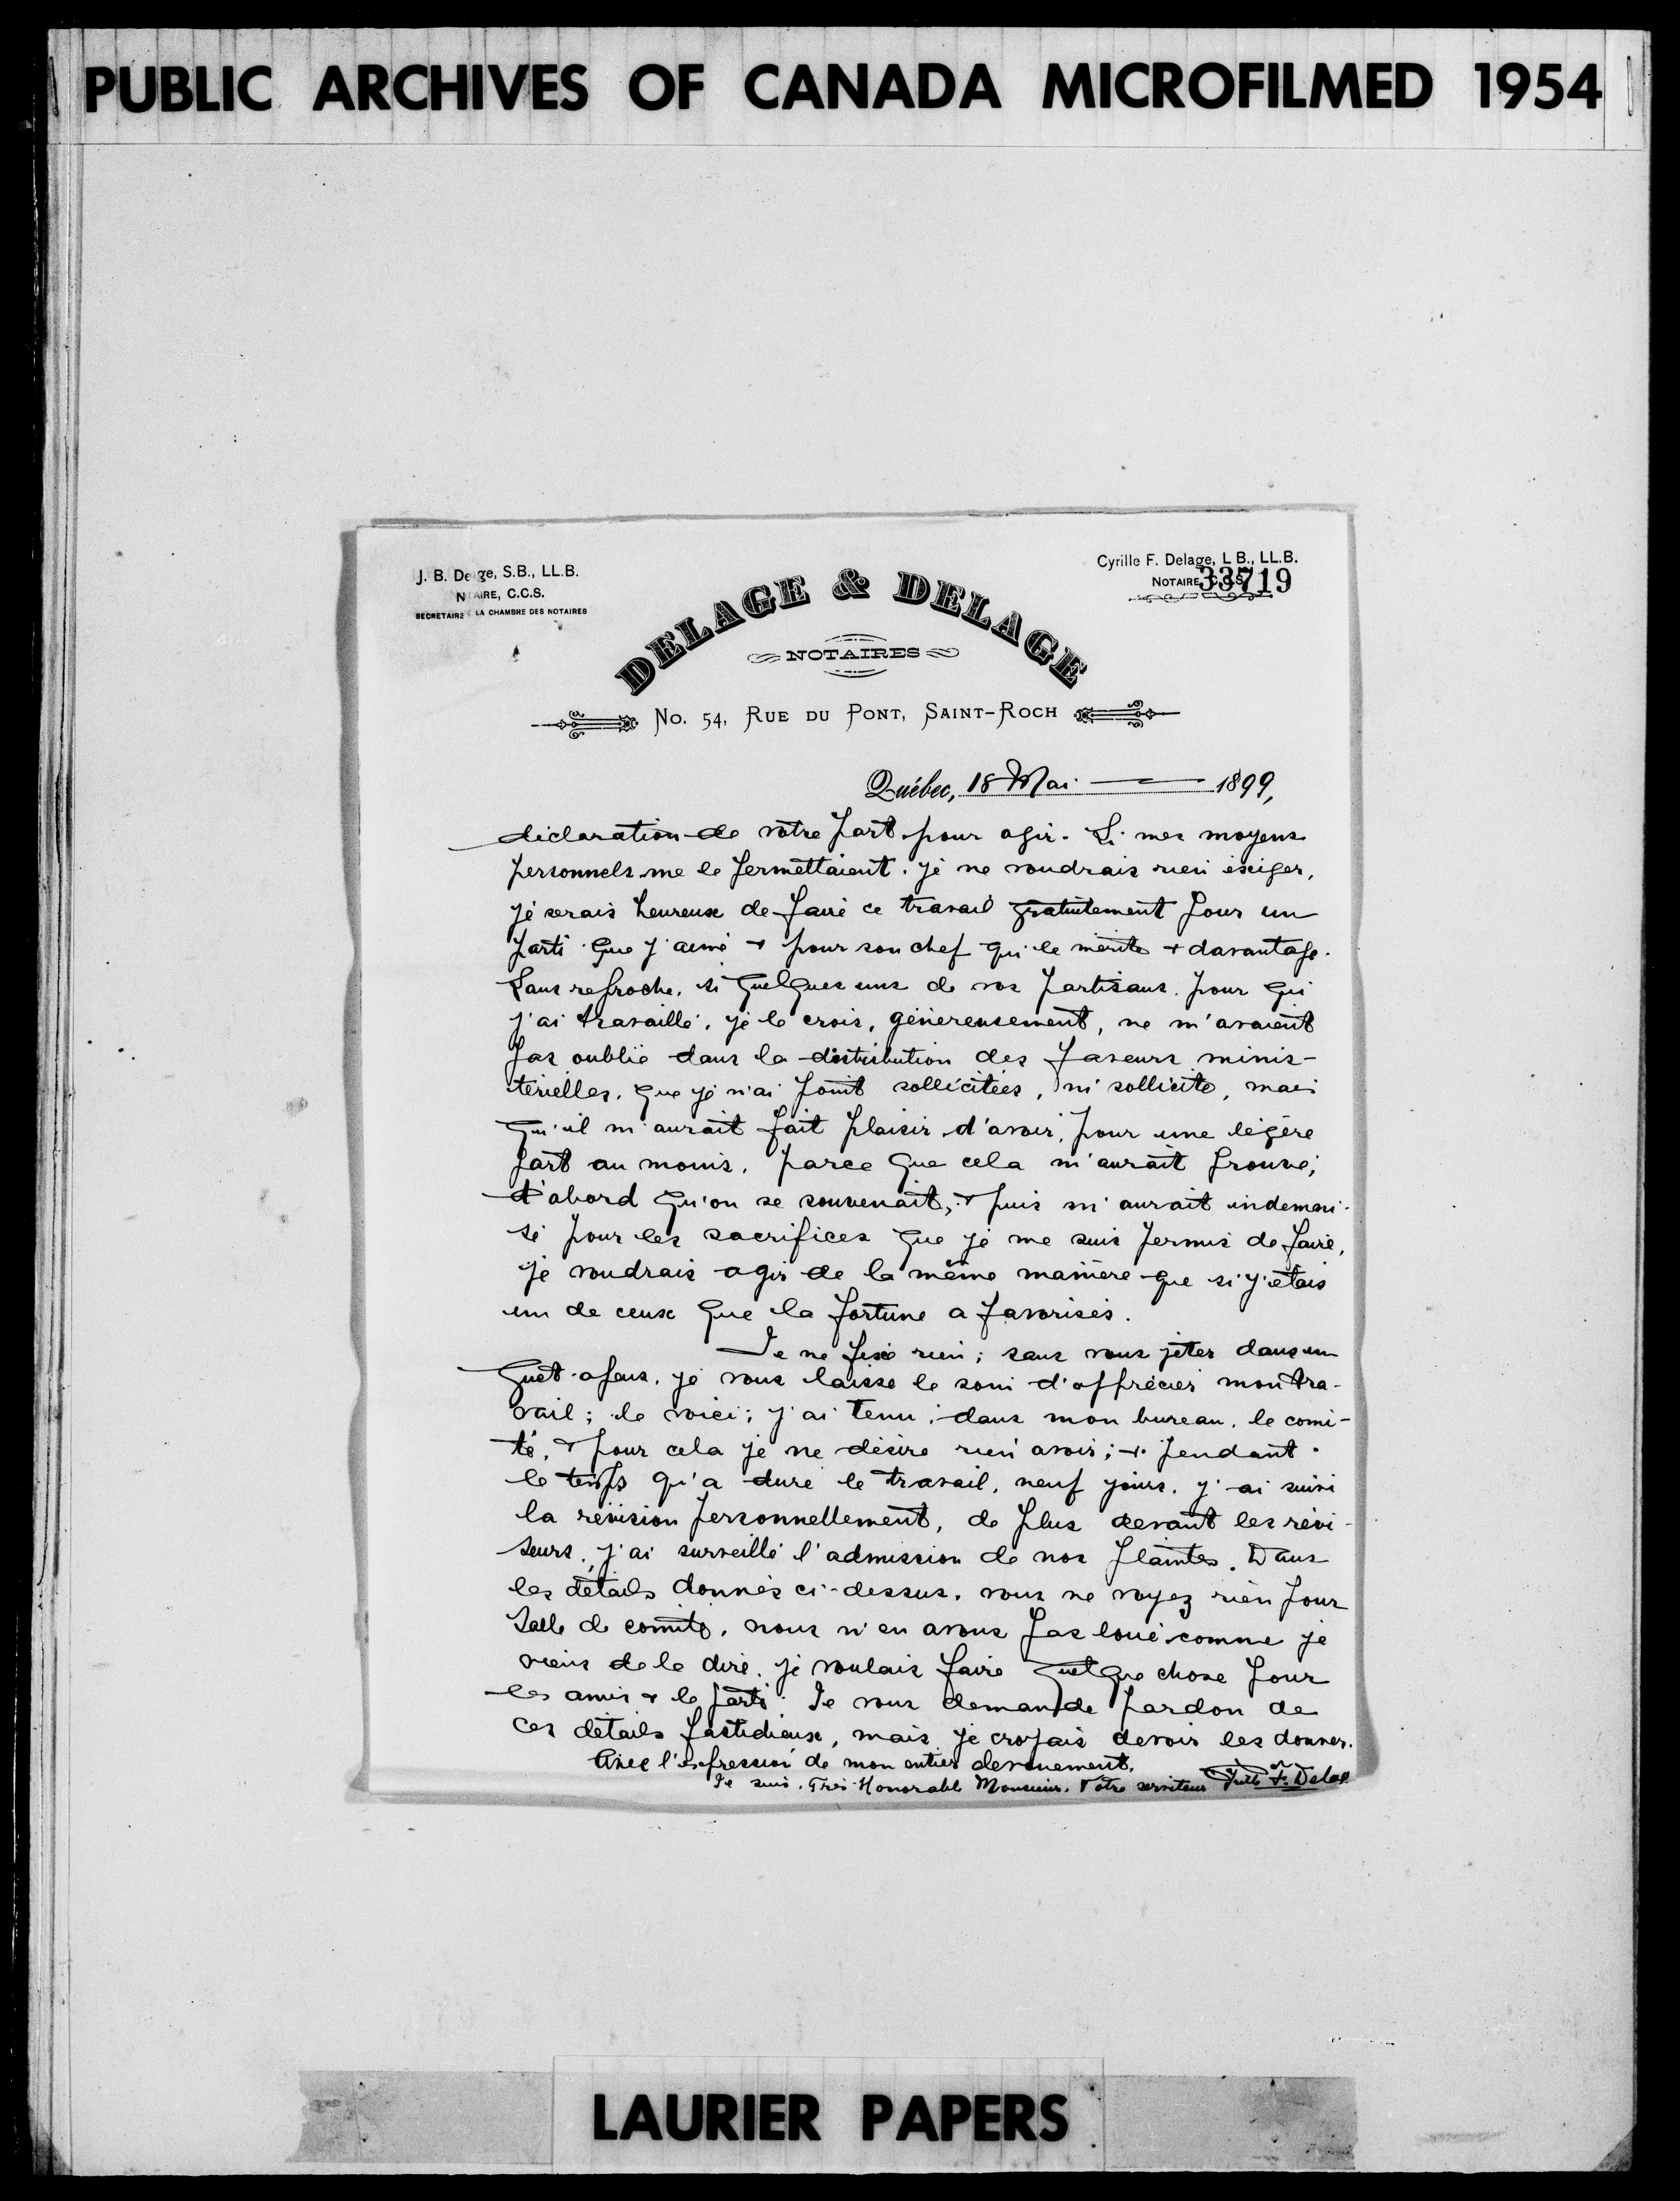 PUBLIC ARCHIVES OF CANADA MICROFILMED 1954
J. B. Delage, S.B., LL.B.
NOTAIRE, C.C.S.
SECRETAIRE DE LA CHAMBRE DES NOTAIRES
Cyrille F. Delage, L B., LL.B.
NOTAIRE, C.C.S.
33719
DELAGE & DELAGE
NOTAIRES
No. 54, Rue du Pont, Saint-Roch
Québec, 18 Mai 1899,
déclaration de votre part pour agir. Si mes moyens
personnels me le permettaient, je ne voudrais rien exiger,
je serais heureux de faire ce travail gratuitement pour un
parti que j'aime & pour son chef qui le mérite & davantage.
Sans reproche, si quelques uns de vos partisans pour qui
j'ai travaillé, je le crois, généreusement, ne m'avaient
pas oublié dans la distribution des faveurs minis-
térielles, que je n'ai point sollicitées, ni sollicite, mais
qu'il m'aurait fait plaisir d'avoir, pour une légère
part au moins, parce que cela m'aurait prouvé,
d'abord qu'on se souvenait, & puis m'aurait indemni-
sé pour les sacrifices que je me suis permis de faire,
je voudrais agir de la même manière que si j'étais
un de ceux que la fortune a favorisés.
Je ne fixe rien; sans vous jeter dans un
guet-apens, je vous laisse le soin d'apprécier mon tra-
vail; le voici; j'ai tenu, dans mon bureau, le comi-
té, & pour cela je ne désire rien avoir; & pendant
le temps qu'a duré le travail, neuf jours, j'ai suivi
la révision personnellement, de plus devant les révi-
seurs, j'ai surveillé l'admission de nos plaintes. Dans
les détails donnés ci-dessus, vous ne voyez rien pour
salle de comité, nous n'en avons pas loué comme je
viens de le dire, je voulais faire quelque chose pour
les amis & le parti. Je vous demande pardon de
ces détails fastidieux, mais je croyais devoir les donner.
Avec l'expression de mon entier dévouement,
Je suis, Très-Honorable Monsieur, Votre serviteur F. Delage
LAURIER PAPERS